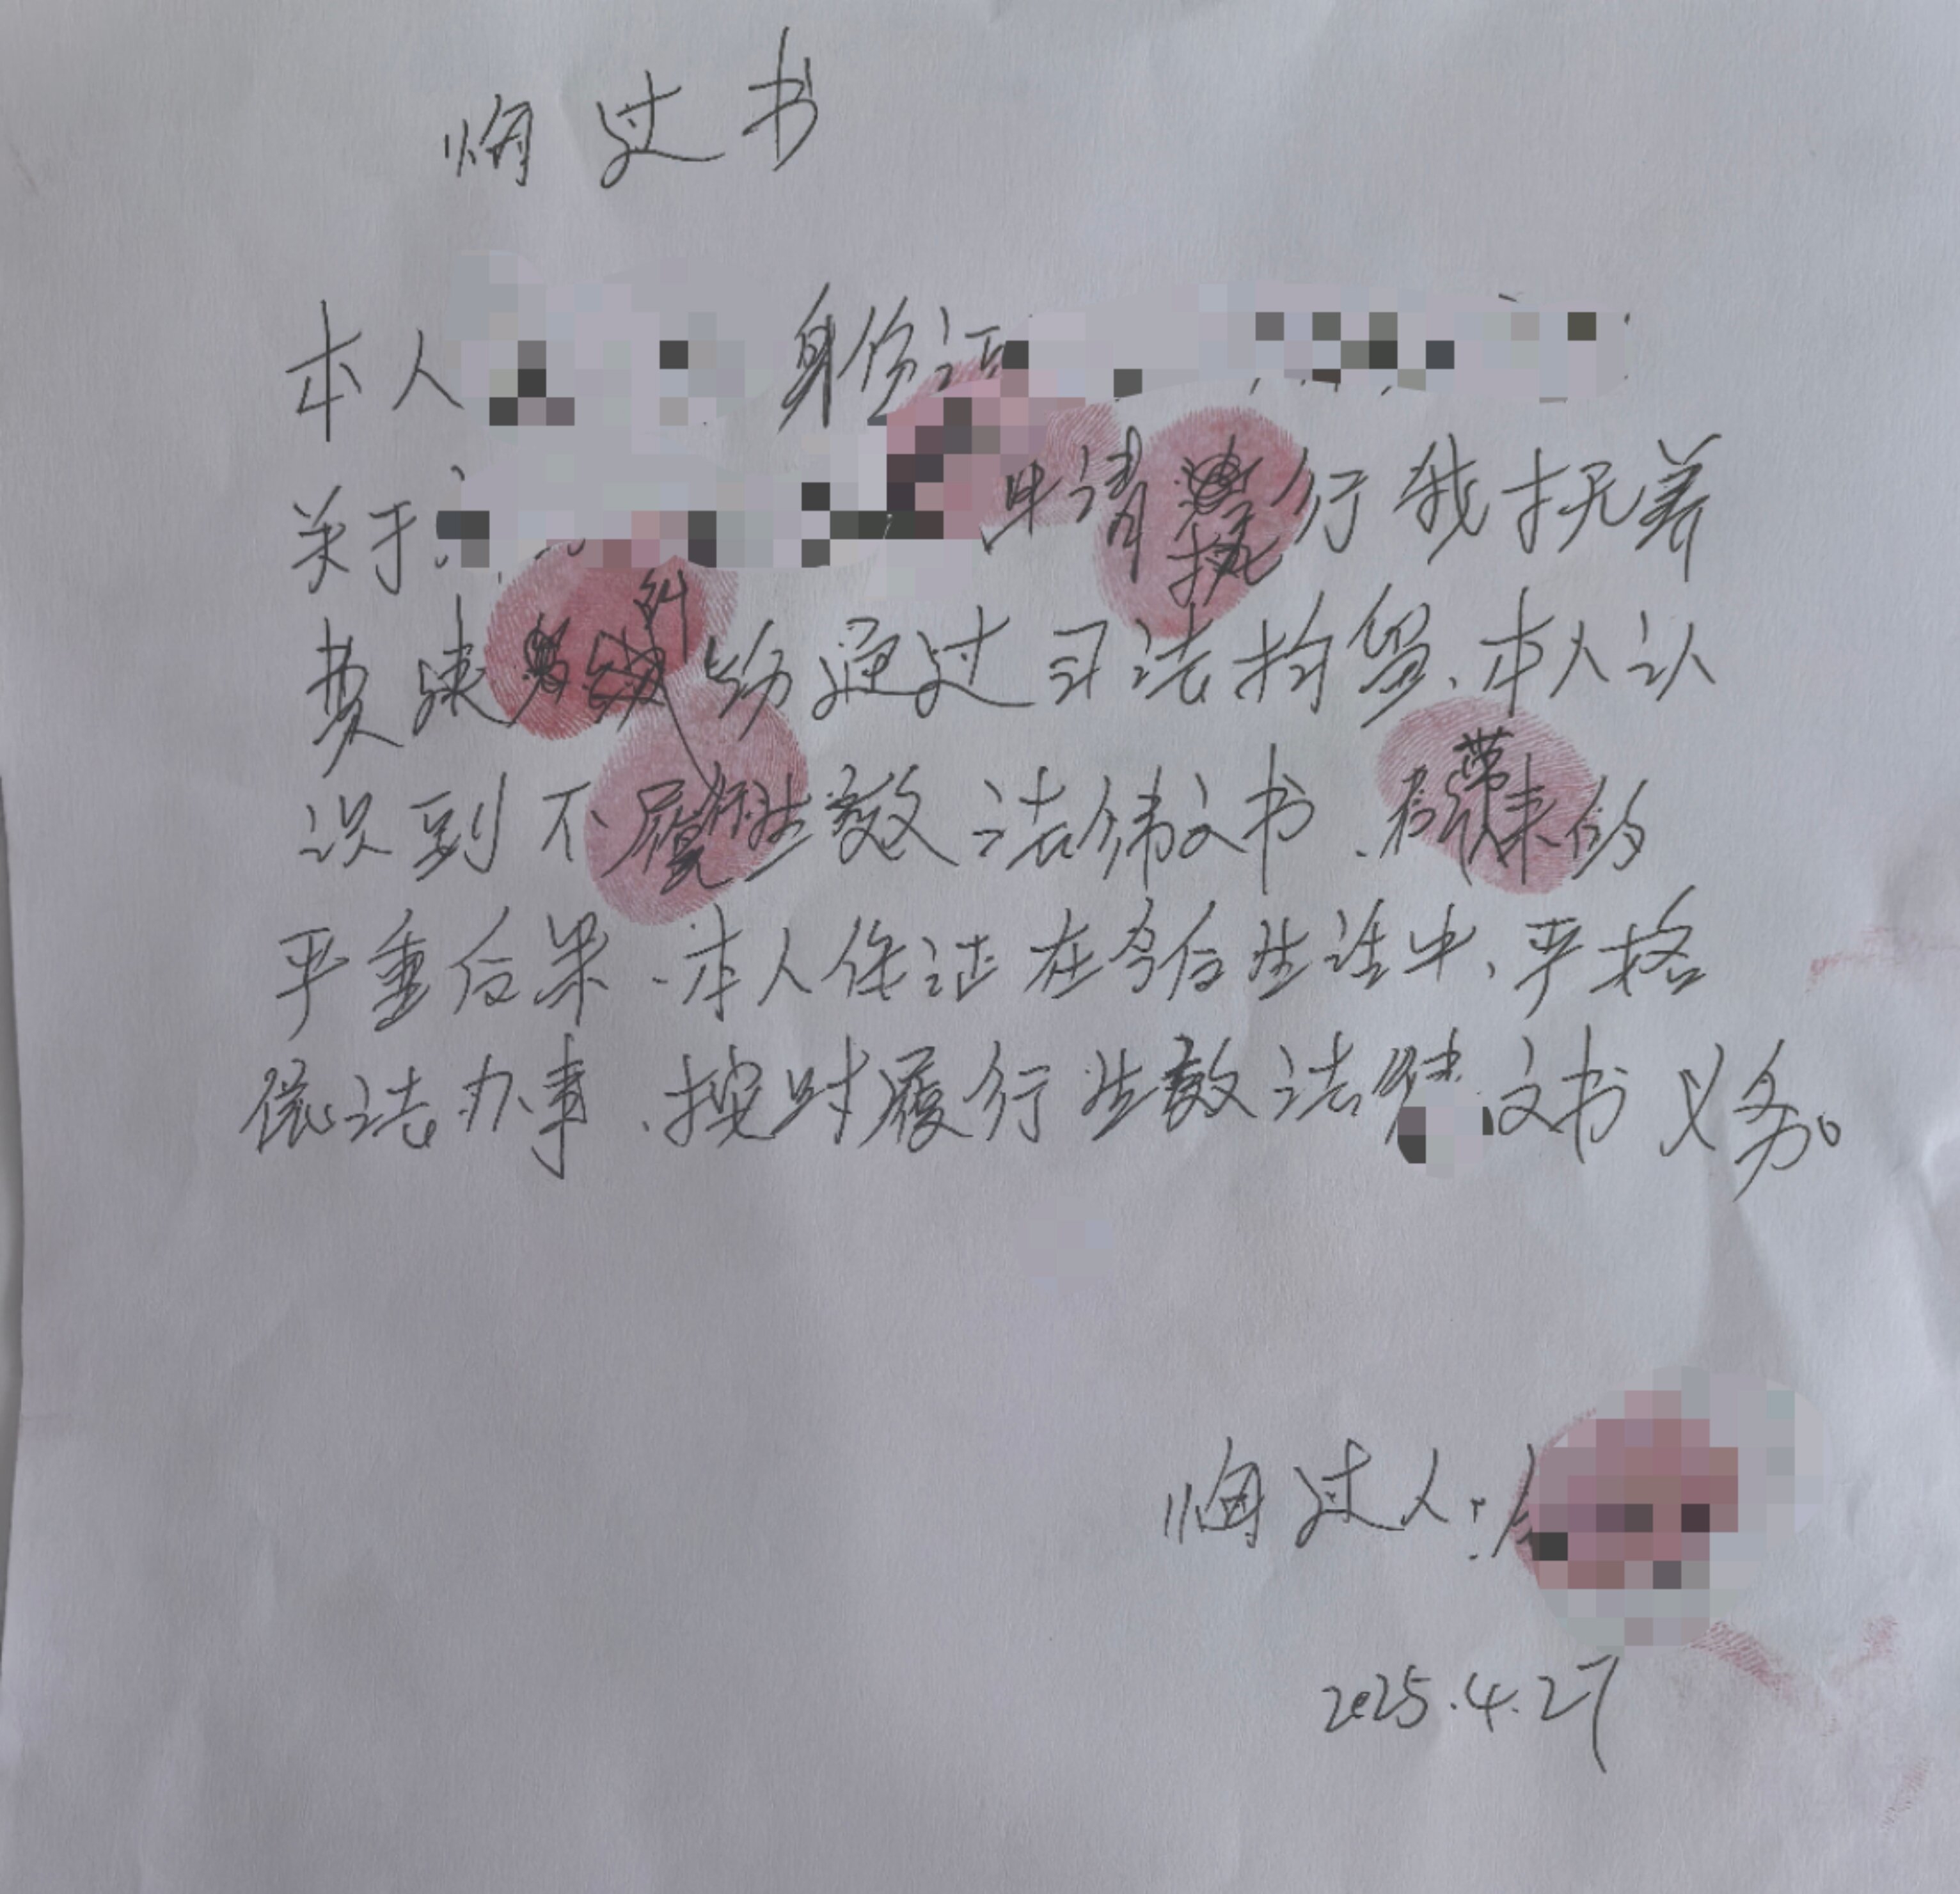 悔过书
本人 身份证
关于 申请执行我抚养
费 纠纷通过司法拘留、本人认
识到不履行生效法律文书、带来的
严重后果、本人保证在今后生活中、严格
依法办事、按时履行生效法律文书义务。
悔过人:
2025.4.27